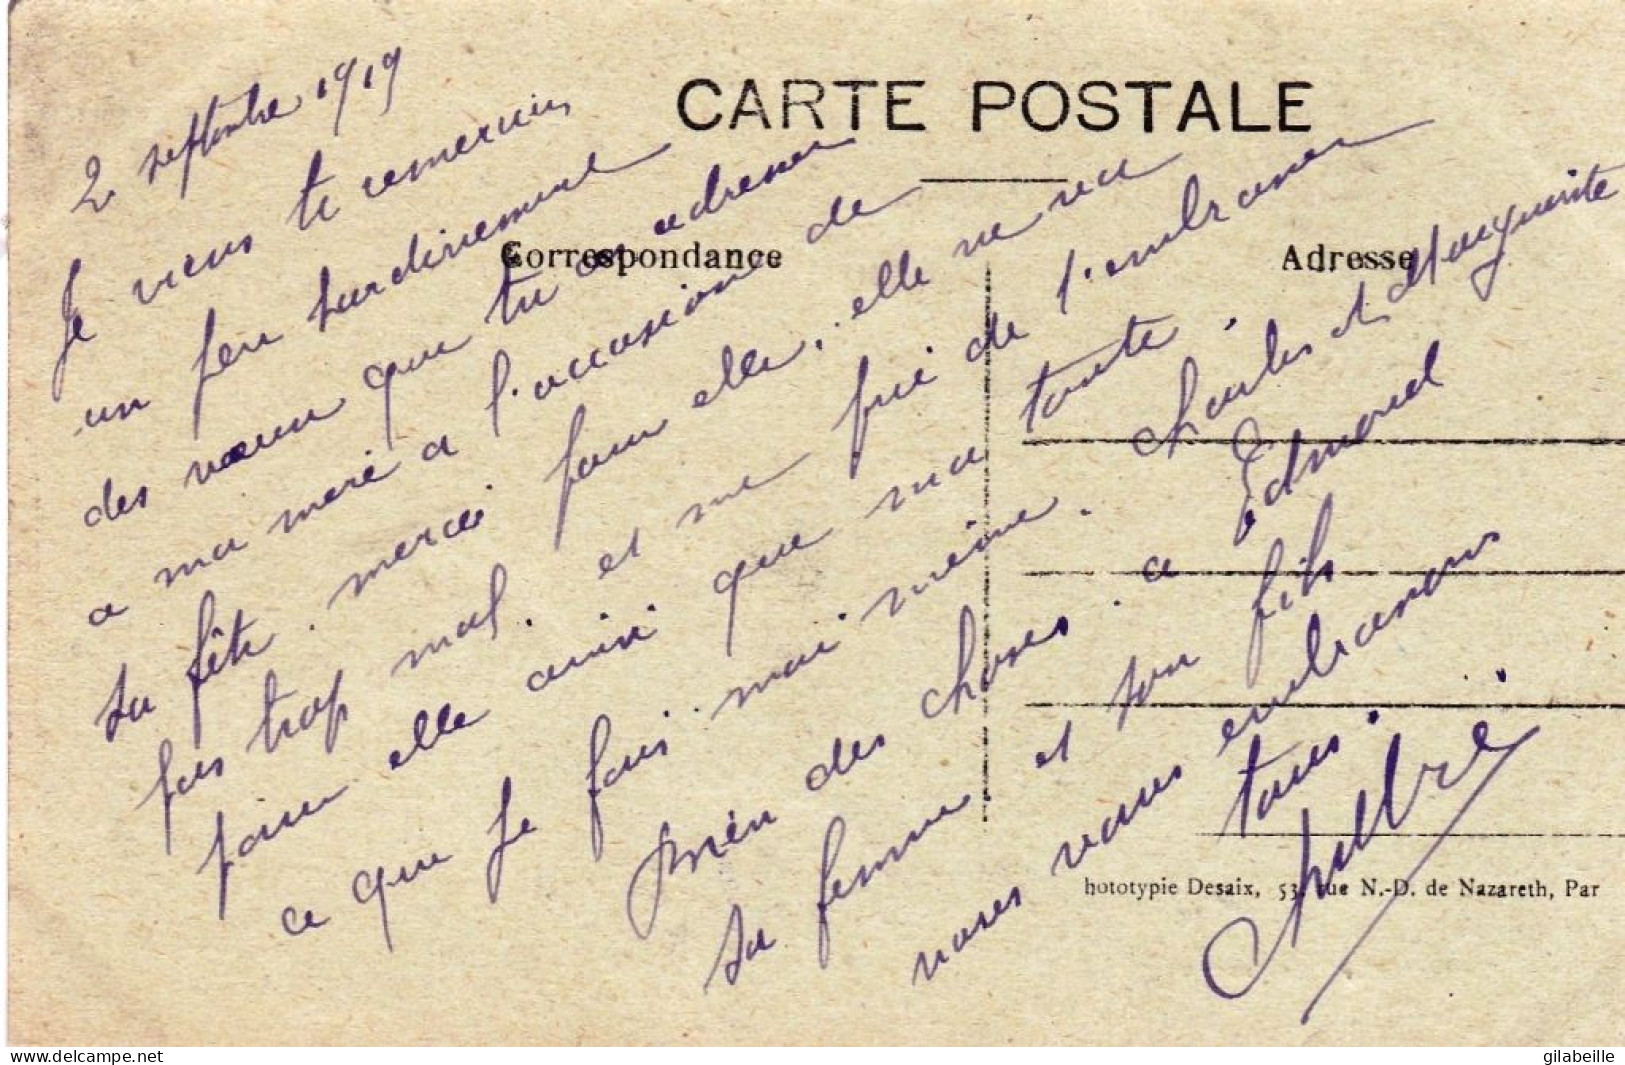 CARTE POSTALE
Correspondance
Adresse
2 septembre 1919
Je viens te remercier
un peu tardivement
des vœux que tu as adresser
a ma mere a l'occasion de
sa fête. merci pour elle. elle ne va
pas trop mal. et me prie de l'embrasser
pour elle ainsi que ma tante.
ce que je fais moi même. Charles et Marguerite
bien des choses. a Edmond
sa femme et son fils
nous vous embrassons
tous.
hototypie Desaix, 53, rue N.-D. de Nazareth, Par
www.delcampe.net
gilabeille